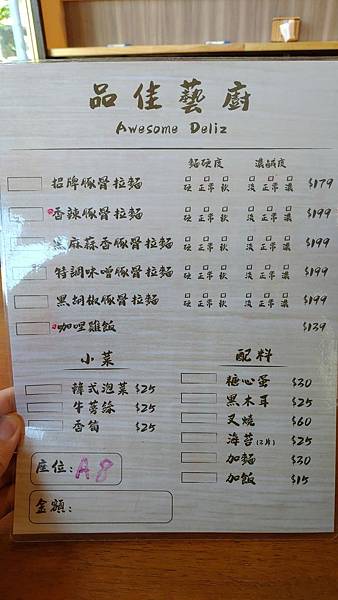 品佳藝廚
Awesome Deliz
麵硬度 濃鹹度
招牌豚骨拉麵 硬 正常 軟 淡 正常 濃 $179
香辣豚骨拉麵 硬 正常 軟 淡 正常 濃 $199
黑麻蒜香豚骨拉麵 硬 正常 軟 淡 正常 濃 $199
特調味噌豚骨拉麵 硬 正常 軟 淡 正常 濃 $199
黑胡椒豚骨拉麵 硬 正常 軟 淡 正常 濃 $199
咖哩雞飯 $139
小菜
韓式泡菜 $25
牛蒡絲 $25
香筍 $25
配料
糖心蛋 $30
黑木耳 $25
叉燒 $60
海苔(2片) $25
加麵 $30
加飯 $15
座位: A8
金額: